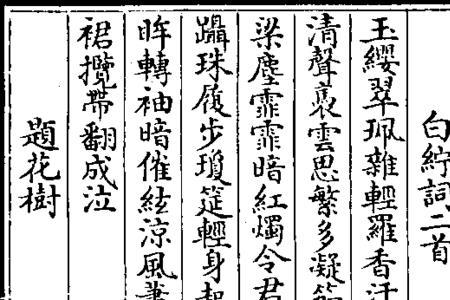 白紵詞二首
玉纓翠珮雜輕羅香汗
清聲裊雲思繁多凝笳
梁塵霏霏暗紅燭令君
躡珠履步瓊筵輕身起
眸轉袖暗催絃涼風蕭
裙攬帶翻成泣
題花樹